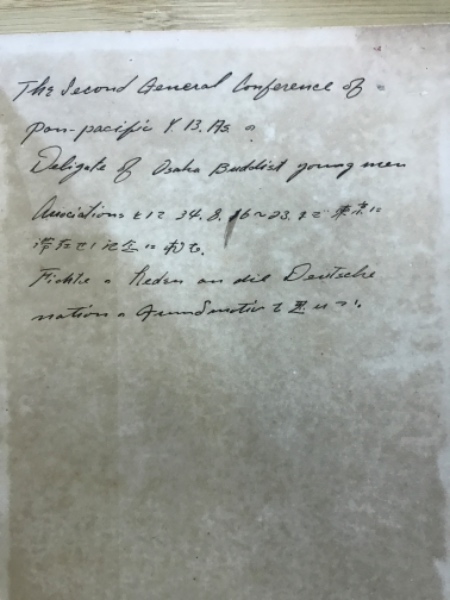 The Second General Conference of
pan-pacific Y. B. As の
Deligate of Osaka Buddist young men
Associations として 34. 8. 16~23. まで 東京に
滞在せし記念に求む。
Fichte の Reden an die Deutsche
nation の Grundmotiv を思ひつつ。